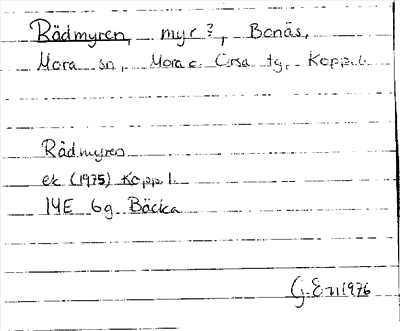 Rädmyren, myr?, Bonäs,
Mora sn, Mora o. Orsa tg, Kopp.l.
Rådmyren
ek (1975) Kopp l.
14E 6g Bäcka
G. En 1976